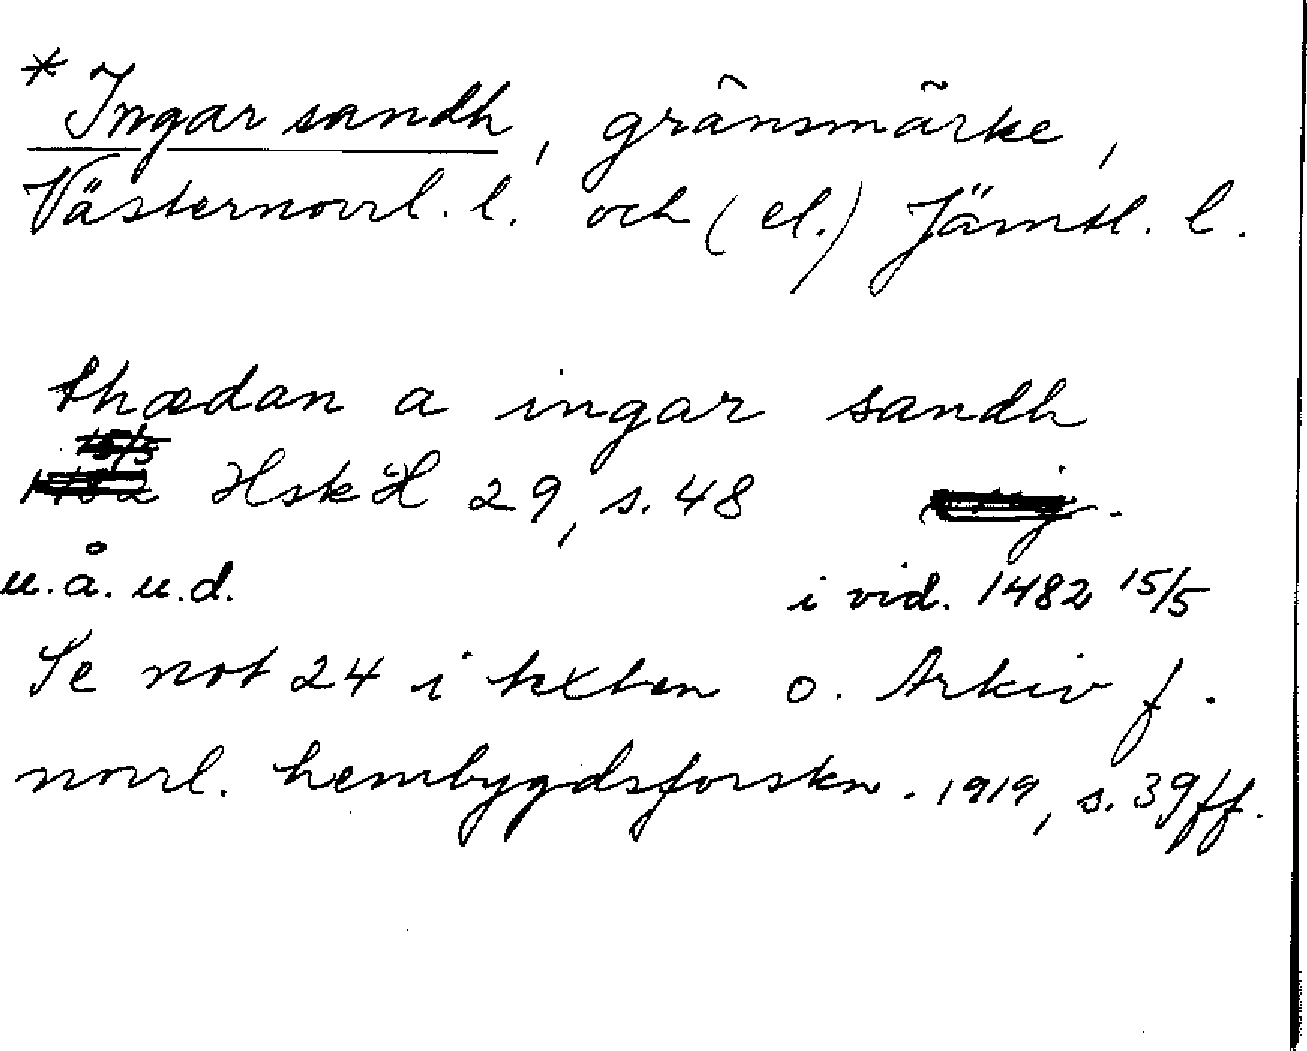 * Ingar sandh, gränsmärke,
Västernorrl. l. och (el.) Jämtl. l.
thædan a ingar sandh
15/5
1482 HskH 29, s. 48
u.å. u.d. i vid. 1482 15/5
Se not 24 i texten o. Arkiv f.
norrl. hembygdsforskn. 1919, s. 39ff.